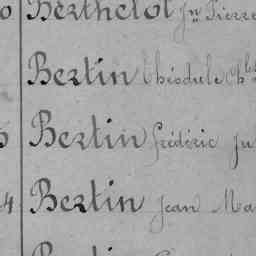 Berthelot Jn Pierre
Bertin Théodule Ch
Bertin Frédéric Ju
4 Bertin Jean Ma